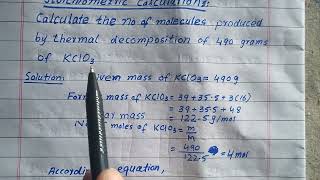 Stoichiometric Calculations:
Calculate the no of molecules produced
by thermal decomposition of 490 grams
of KClO3
Solution: Given mass of KClO3 = 490g
Form mass of KClO3 = 39 + 35.5 + 3(16)
= 39 + 35.5 + 48
ar mass = 122.5 g/mol
N moles of KClO3 = m/M
= 490/122.5 = 4 mol
According equation,